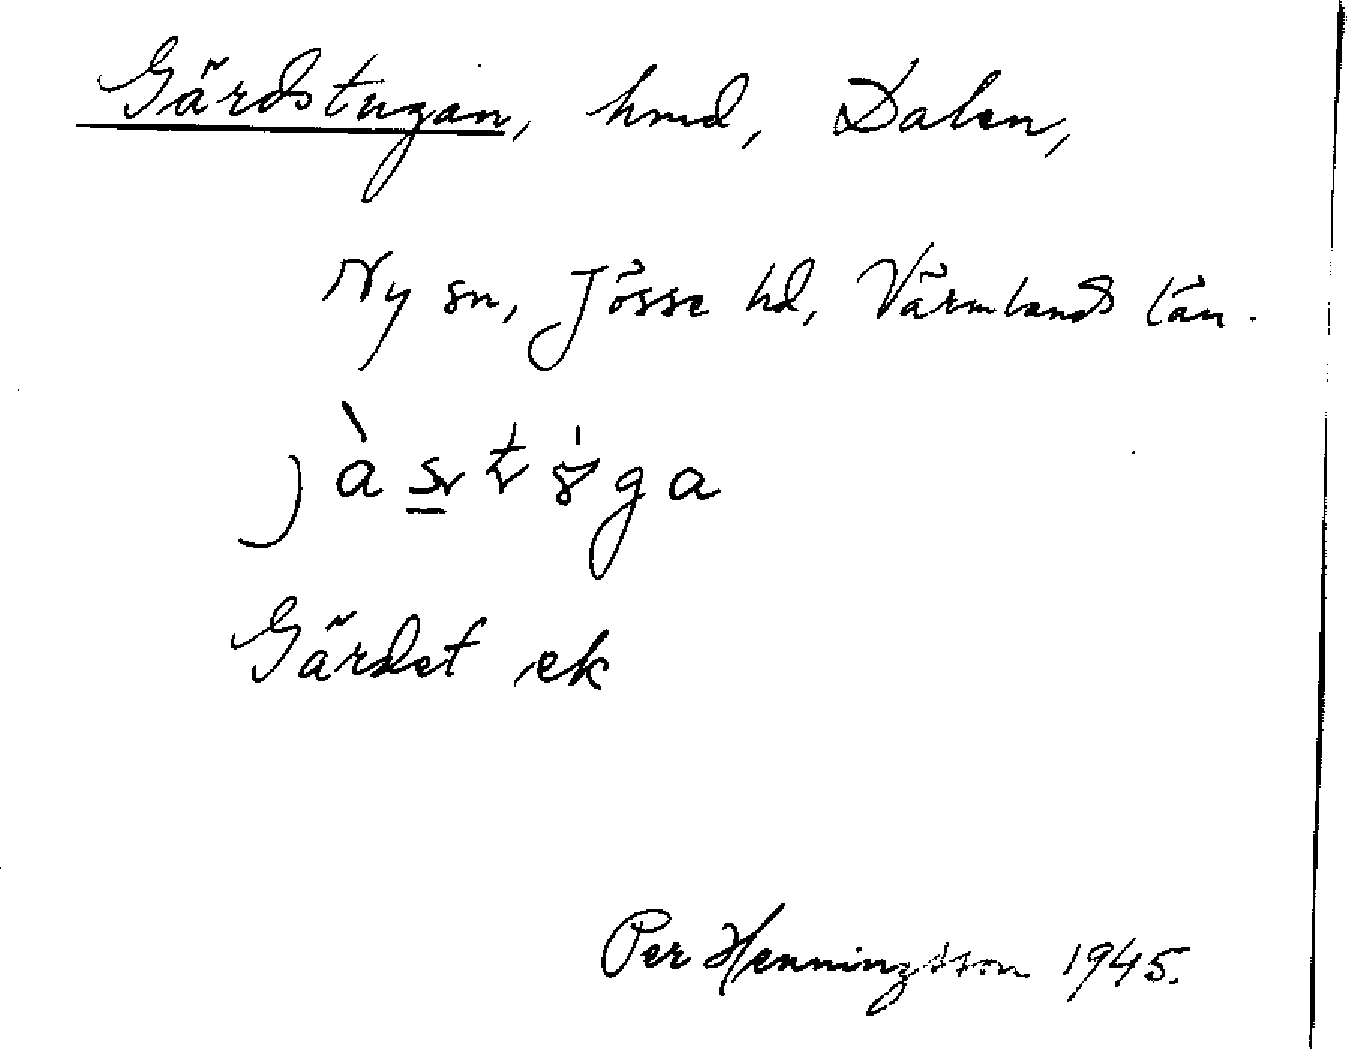 Gärdstugan, hmd, Dalen,
Ny sn, Jösse hd, Värmlands län.
Gärdet ek
Per Henningsson 1945.